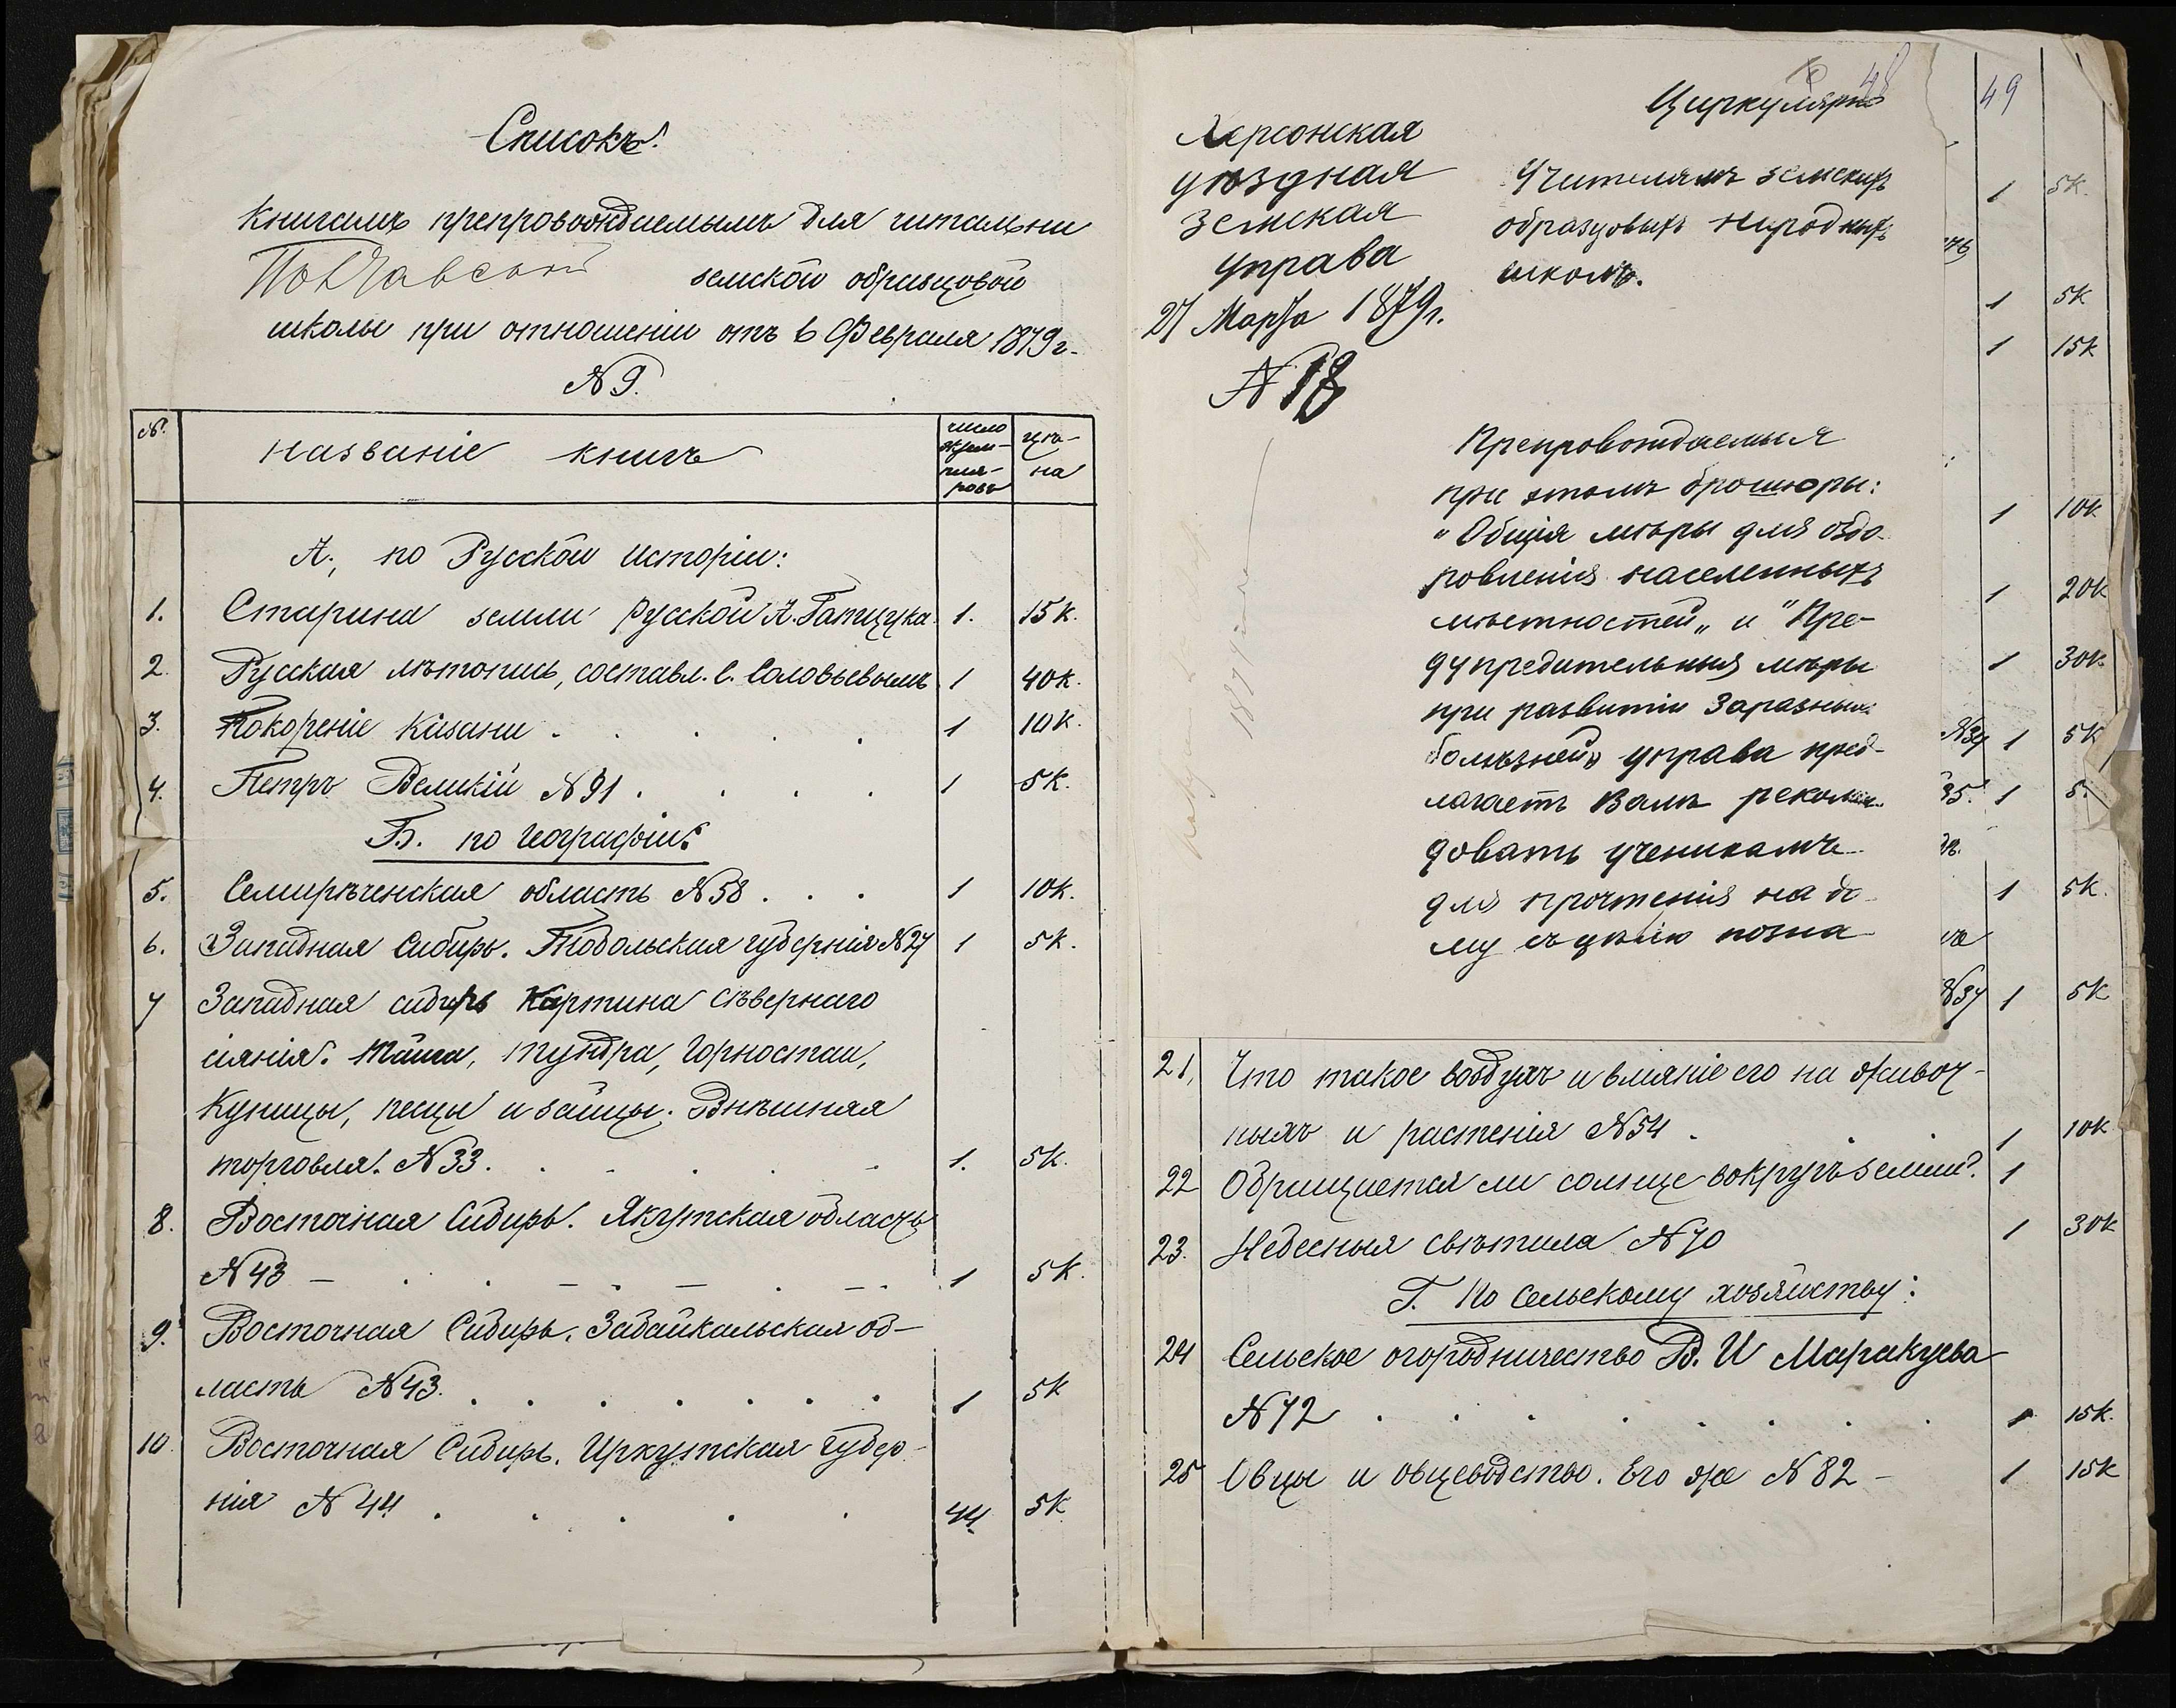 Списокъ
книгамъ препровождаемымъ для читальни
земской образцовой
школы при отношеніи отъ 6 Февраля 1879 г.
№ 9.
№ названіе книгъ число экзем-пля-ровъ цѣ-на
А., по Русской исторіи:
1. Старина земли русской А. Гатцука. 1. 15 к.
2. Русская лѣтопись, составл. С. Соловьевымъ 1 40 к.
3. Покореніе Казани . . . . . 1 10 к.
4. Петръ Великій № 91 . . . . 1 5 к.
Б. по географіи:
5. Семирѣченская область № 58 . . . 1 10 к.
6. Западная Сибирь. Тобольская губернія № 27 1 5 к.
7 Западная сибирь Картина сѣвернаго
сіянія. Тайга, тундра, Горностаи,
Куницы, песцы и зайцы. Внѣшняя
торговля. № 33. . . . . . 1. 5 к.
8. Восточная Сибирь. Якутская область
№ 43 – . . – . – . – . 1 5 к.
9. Восточная Сибирь. Забайкальская об–
ласть № 43. . . . . . . . 1 5 к
10. Восточная Сибирь. Иркутская губер–
нія № 44 . . . . . 44. 5 к
Циркулярно
48
Херсонская
уѣздная
земская
управа
27 Марта 1879 г.
№ 18
Учителямъ земскихъ
образцовыхъ народныхъ
школъ.
Препровождаемыя
при этомъ брошюры:
"Общія мѣры для оздо-
ровленія населенныхъ
мѣстностей„ и "Пре-
дупредительныя мѣры
при развитіи Заразныхъ
болѣзней" управа пред-
лагаетъ Вамъ рекомен-
довать ученикамъ
для прочтенія на до-
му съ цѣлію позна
49
1 5 к.
1 5 к
1 15 к
1 10 к.
1 20 к
1 30 к.
№ 34 1 5 к
35. 1 5.
1 5 к.
№ 37 1 5 к
21, Что такое воздухъ и вліяніе его на живот-
ныхъ и растенія № 54 . . . 1 10 к
22 Обращается ли солнце вокругъ земли? 1
23. Небесныя свѣтила № 70 1 30 к
Г. По сельскому хозяйству:
24 Сельское огородничество В. И Маракуева
№ 72 . . . . . . . . 1 15 к.
25 Овцы и овцеводство. Его же № 82 – 1 15 к